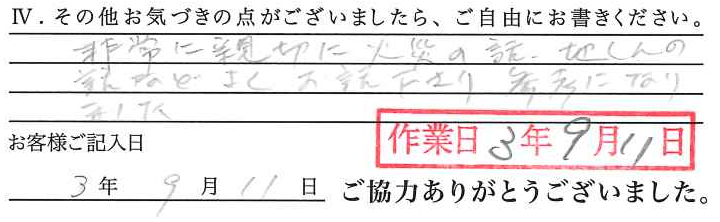 Ⅳ．その他お気づきの点がございましたら、ご自由にお書きください。
非常に親切に火災の話、地しんの
話などよくお話下さり 参考になり
ました
お客様ご記入日
作業日 3年9月11日
3年 9月 11日 ご協力ありがとうございました。